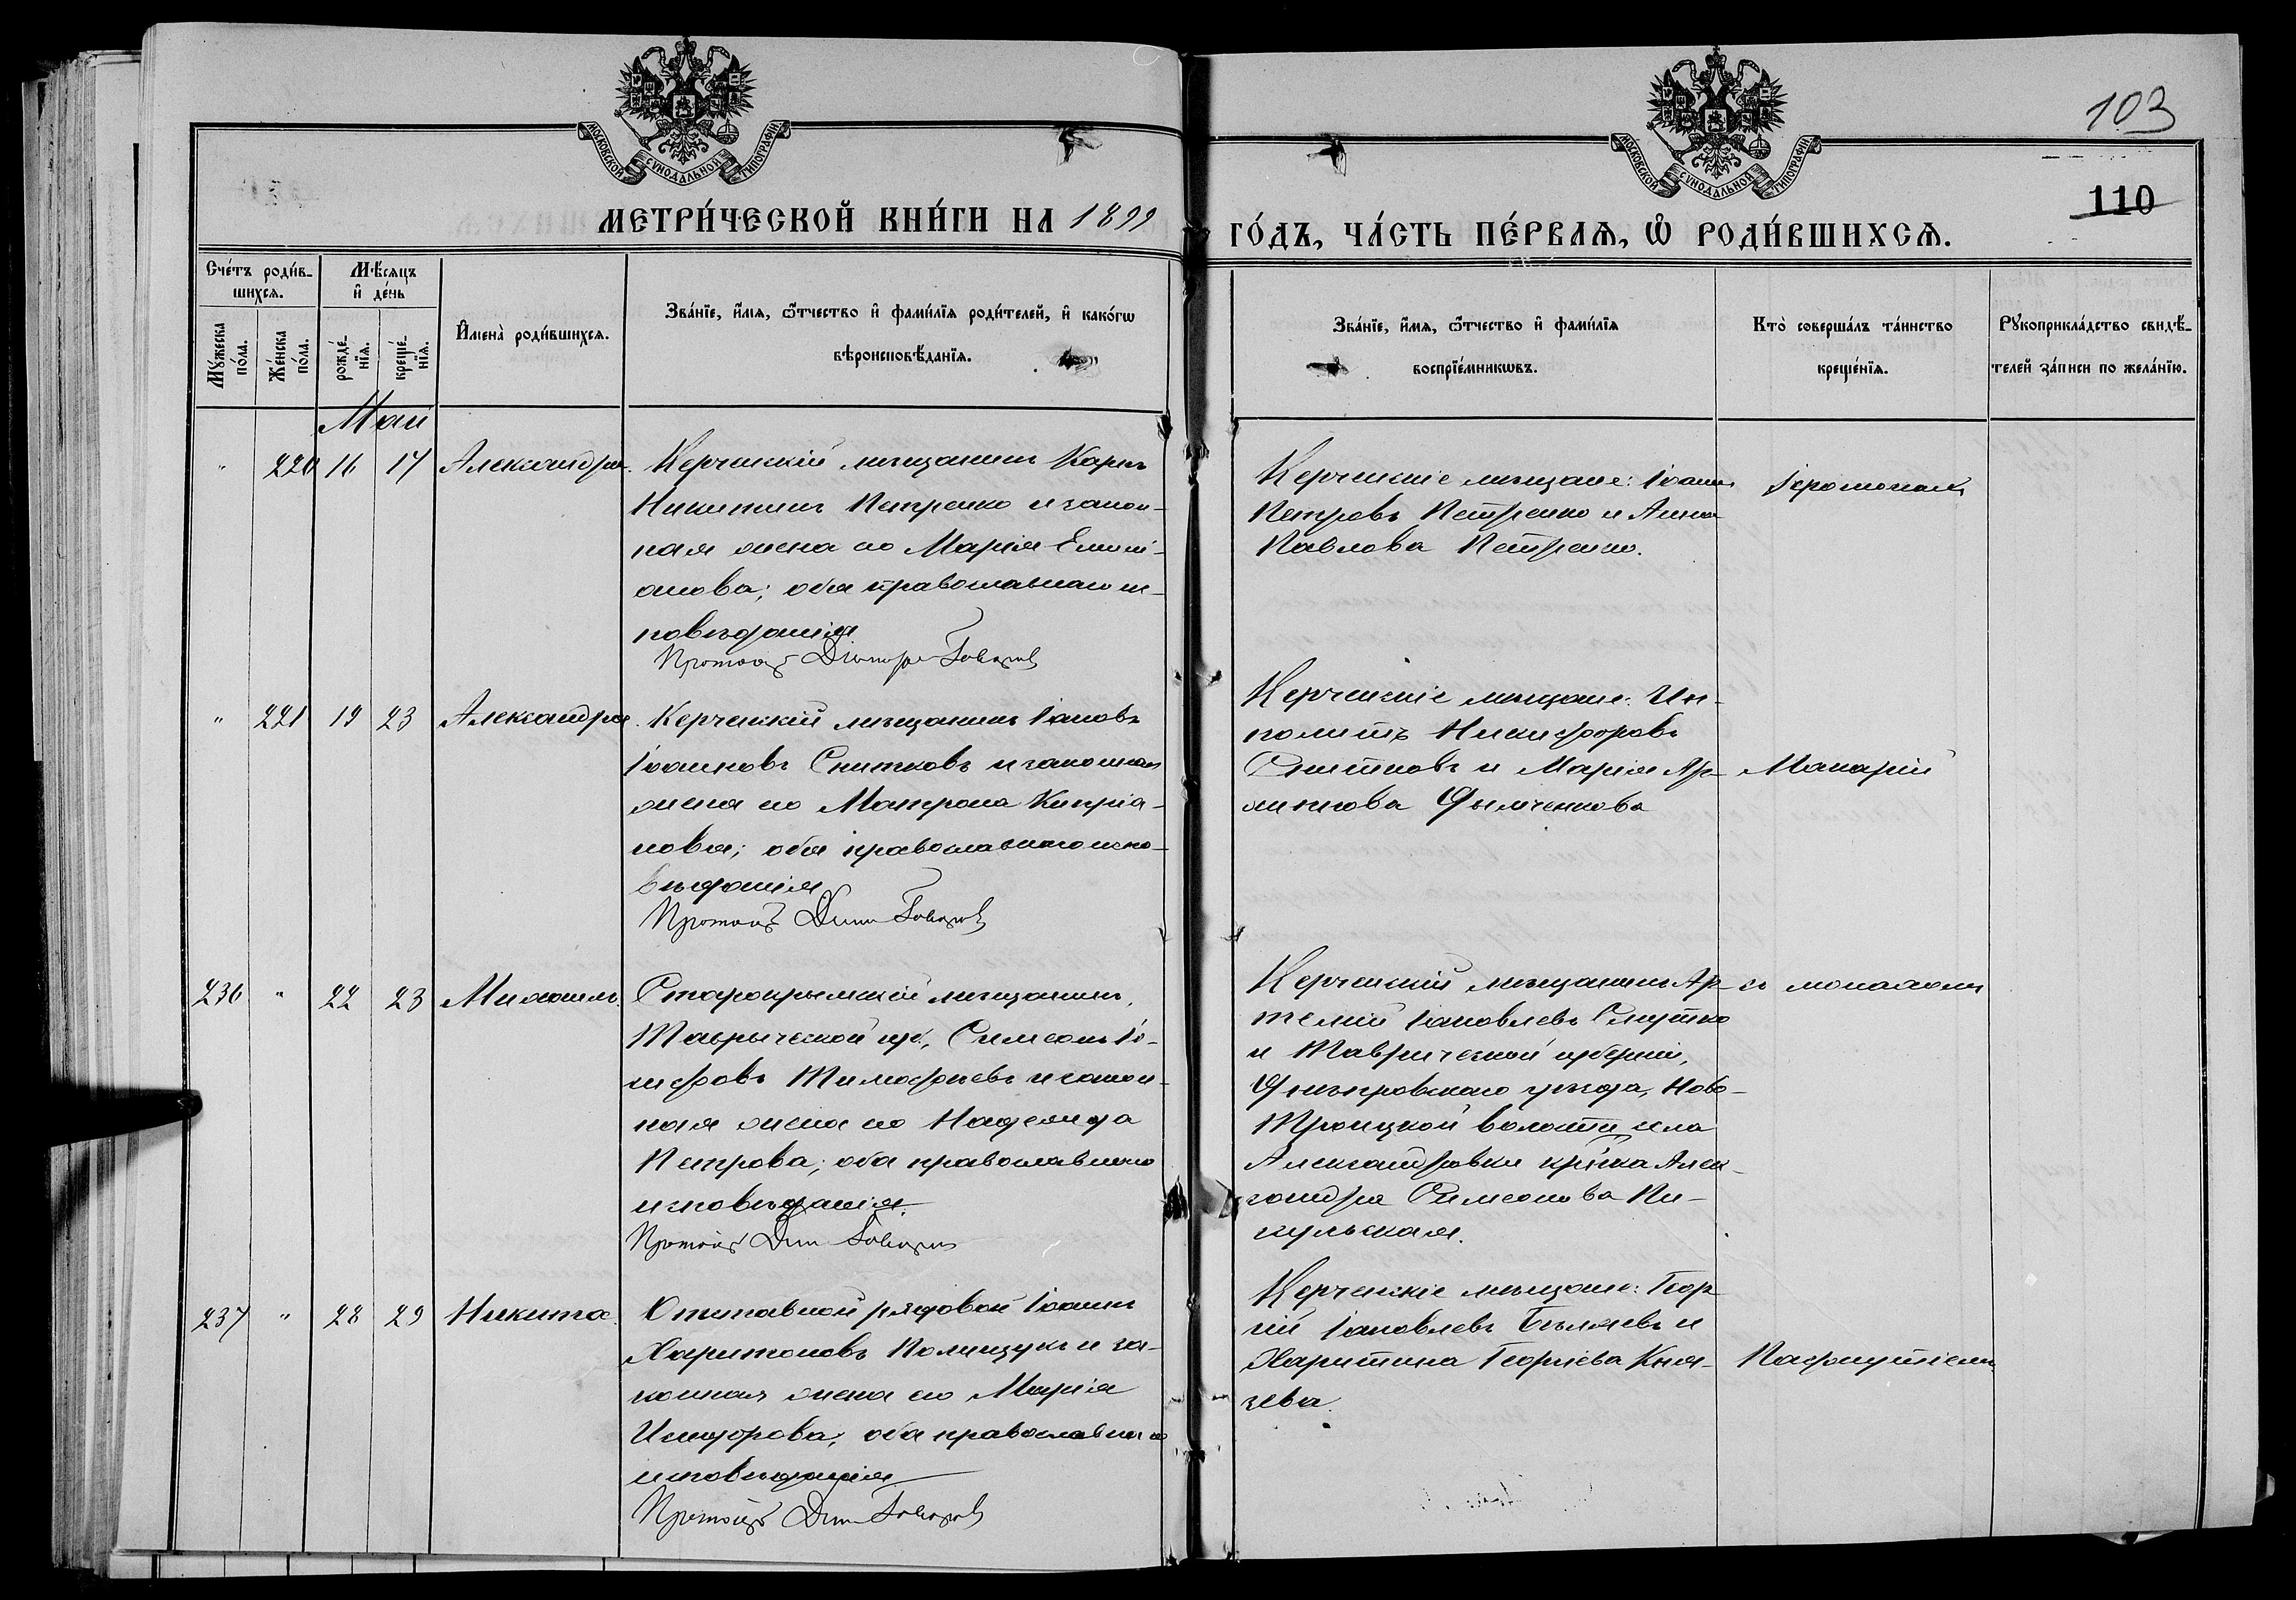 103
110
МОСКОВСКОЙ СѴНОДАЛЬНОЙ ТИПОГРАФІИ
МОСКОВСКОЙ СѴНОДАЛЬНОЙ ТИПОГРАФІИ
МЕТРИ́ЧЕСКОЙ КНИ́ГИ НА 1899
ГО́ДЪ, ЧА́СТЬ ПЕ́РВАѦ, Ѡ҆ РОДИ́ВШИХСѦ.
Сче́тъ роди́в-
шихсѧ.
Мꙋ́жеска по́ла.
Же́нска по́ла.
Мѣ́сѧцъ
и҆ де́нь
рожде́-нїѧ.
креще́-нїѧ.
И҆мена̀ роди́вшихсѧ.
Зва́нїе, и҆́мѧ, ѻ҆́тчество и҆ фами́лїѧ роди́телей, и҆ како́гѡ
вѣроисповѣ́данїѧ.
Зва́нїе, и҆́мѧ, ѻ҆́тчество и҆ фами́лїѧ
воспрїе́мникѡвъ.
Кто̀ соверша́лъ та́инство
креще́нїѧ.
Рꙋкоприкла́дство свидѣ́-
телей за́писи по жела́нїю.
Май
" 220 16 17 Александра.
Керченскій мѣщанинъ Карпъ
Никитинъ Петренко и закон-
ная жена его Марія Емилі-
анова; оба православнаго ис-
повѣданія
Протоіер.
Керченскіе мѣщане: Іоаннъ
Петровъ Петренко и Анна
Павлова Петренко.
Іеромонахъ
" 221 19 23 Александра.
Керченскій мѣщанинъ Іаковъ
Іоанновъ Снитковъ и законная
жена его Матрона Кипріа-
нова; оба православнаго испо-
вѣданія
Протоіер.
Керченскіе мѣщане: Ип-
политъ Никифоровъ
Снитковъ и Марія
Дымченкова
Макарій
236 " 22 23 Михаилъ.
Старокрымскій мѣщанинъ,
Таврической губ., Симеонъ Іо-
сифовъ Тимофѣевъ и закон-
ная жена его Надежда
Петрова; оба православнаго
исповѣданія.
Протоіер.
Керченскій мѣщанинъ Ар-
темій Іаковлевъ
и Таврической губерніи,
Днѣпровскаго уѣзда, Ново-
Троицкой волости села
Александровки кр-нка Алек-
сандра Симеонова Пи-
кульская.
съ монахомъ
237 " 28 29 Никита.
Отставной рядовой Іоаннъ
Харитоновъ Полищукъ и за-
конная жена его Марія
Исидорова; оба православнаго
исповѣданія
Протоіер.
Керченскіе мѣщане: Геор-
гій Іаковлевъ Бѣляевъ и
Харитина Георгіева Кня-
зева.
Пафнутіемъ